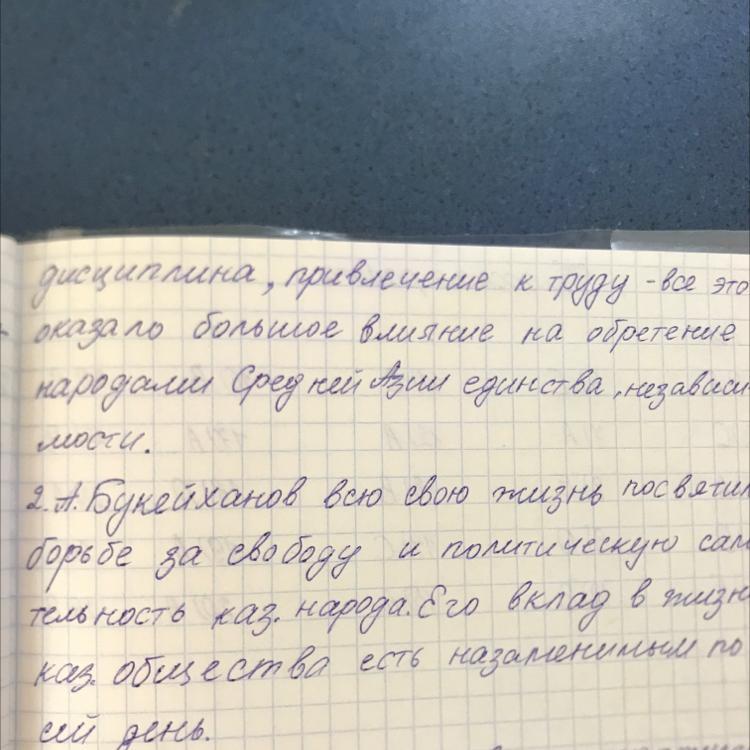 дисциплина, привлечение к труду - все это
оказало большое влияние на обретение
народами Средней Азии единства, независи
мости.
2. А. Букейханов всю свою жизнь посвятил
борьбе за свободу и политическую сам
тельность каз. народа. Его вклад в жизн
каз. общества есть назаменимым по
сей день.